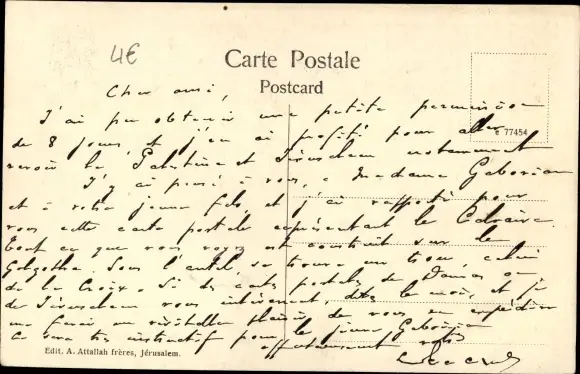 4€
Carte Postale
Postcard
77454
Cher ami,
J'ai pu obtenir une petite permission
de 8 jours et j'en ai profité pour aller
revoir la Palestine et Jérusalem notamment
J'y ai pensé à vous, à Madame Gaborian
et à votre jeune fils et j'ai rapporté pour
vous cette carte postale représentant le Calvaire.
Tout ce que vous voyez est construit sur le
Golgotha. Sous l'autel se trouve un trou, celui
de la Croix. Si des cartes postales de Damas ou
de Jérusalem vous intéressent, dites le moi, et je
me ferai un véritable plaisir de vous en expédier
Ce sera très instructif pour le jeune Gaborian
affectueusement votre
Edit. A. Attallah frères, Jérusalem.